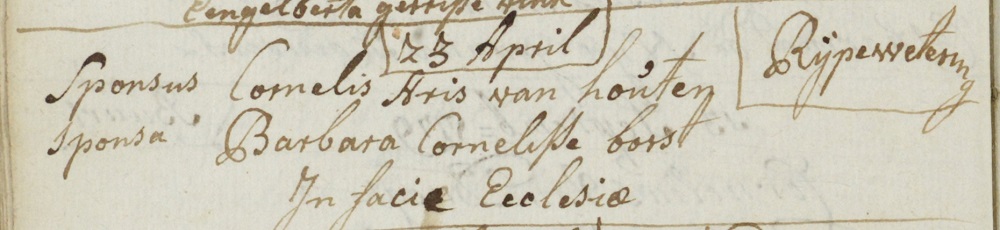 Engelberta gerrisse vink
23 April
Rÿpewetering
Sponsus Cornelis Aris van houten
Sponsa Barbara Cornelisse borst
In facie Ecclesiæ